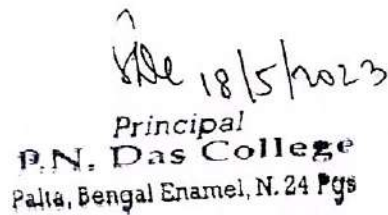 18/5/2023
Principal
P.N. Das College
Palta, Bengal Enamel, N. 24 Pgs